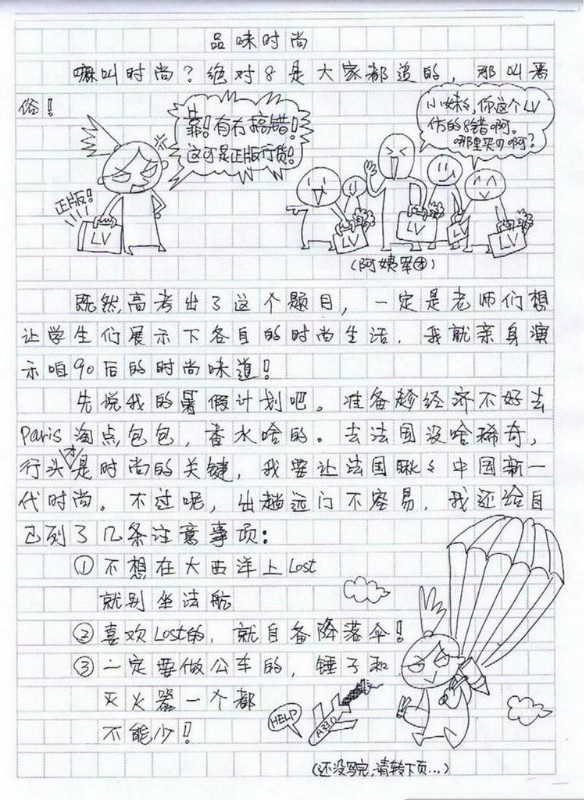 品味时尚
嘛叫时尚？绝对8是大家都道的，那叫署
俗！
靠！有冇搞错！
这可是正版行货！
小妹ミ，你这个LV
仿的8错啊。
哪里买d啊？
正版！
LV
LV
LV
LV
LV
（阿姨军团）
既然高考出了这个题目，一定是老师们想
让学生们展示下各自的时尚生活，我就亲身演
示咱90后的时尚味道！
先说我的暑假计划吧。准备趁经济不好去
Paris淘点包包，香水啥的。去法国没啥稀奇，
行头才是时尚的关键，我要让法国瞅ミ中国新一
代时尚。不过呢，出趟远门不容易，我还给自
己列了几条注意事项：
①不想在大西洋上Lost
就别坐法航
②喜欢Lost的，就自备降落伞！
③一定要做公车的，锤子和
灭火器一个都
不能少！
HELP
A330
（还没写完，请转下页…）